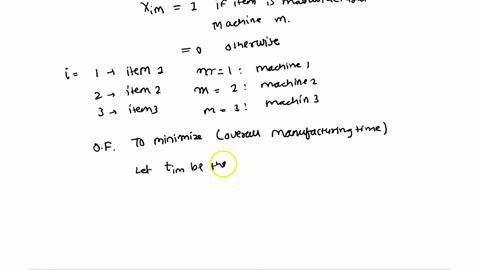 Xim = 1 if item is
machine m.
= 0 otherwise
i = 1 → item 1 m = 1: machine 1
2 → item 2 m = 2: machine 2
3 → item 3 m = 3: machin 3
O.F. To minimize (overall manufacturing time)
Let tim be the